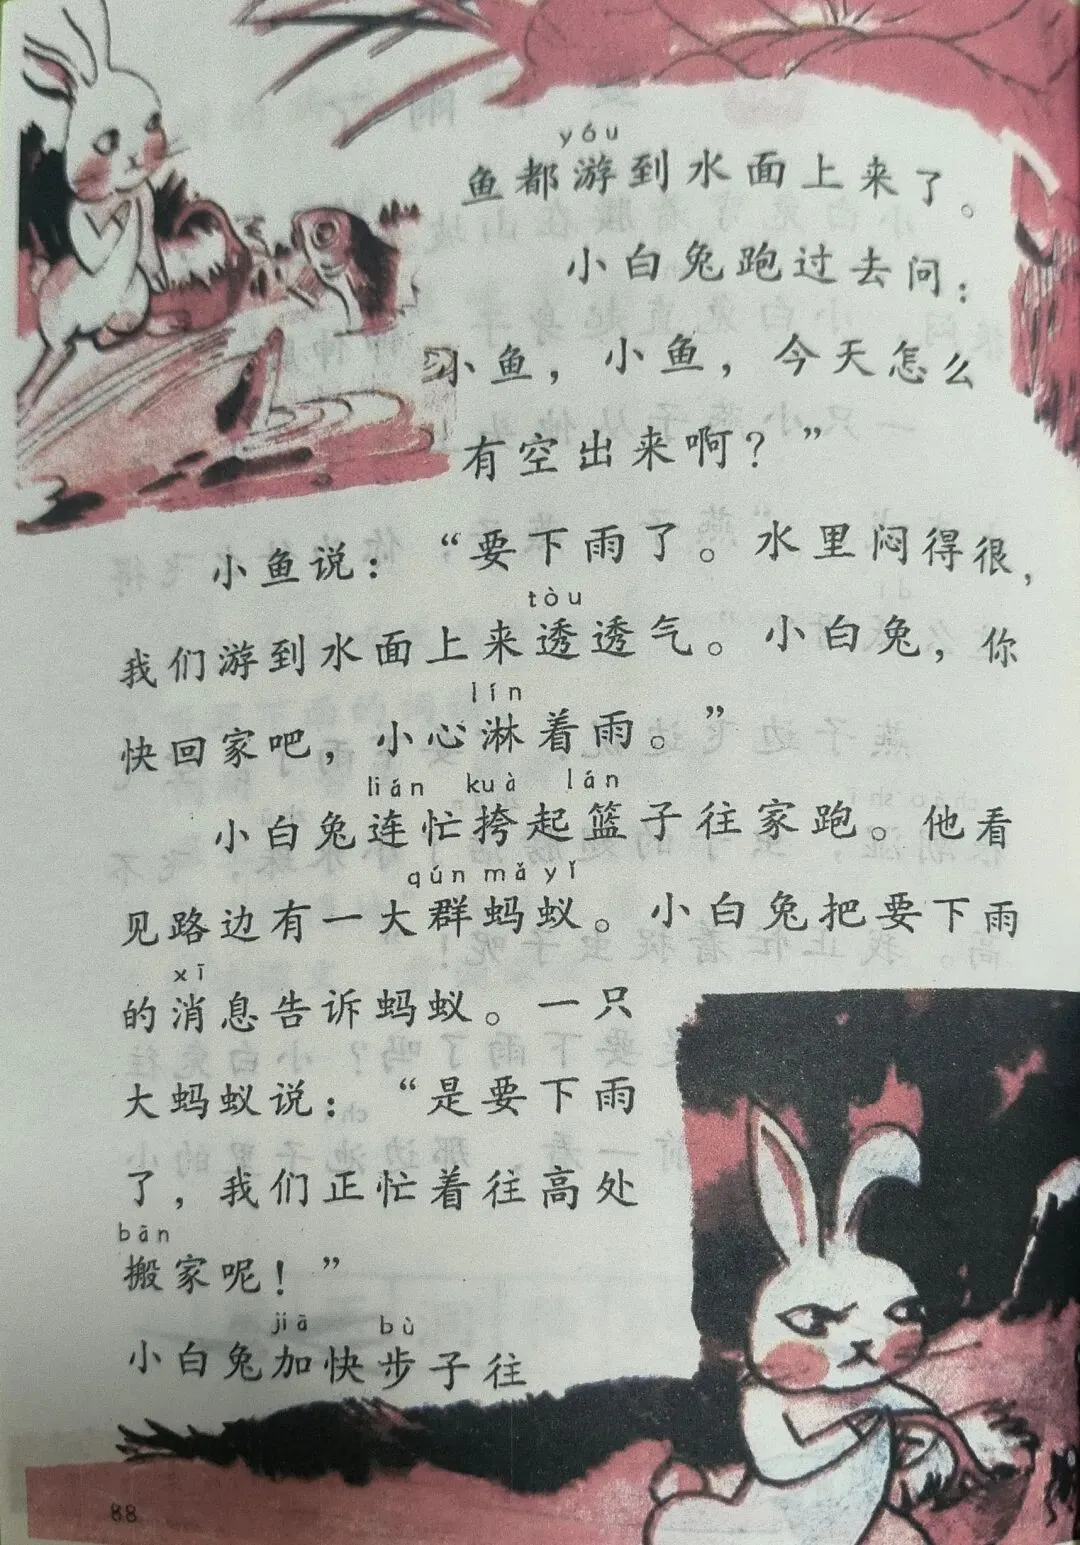 yóu
鱼都游到水面上来了。
小白兔跑过去问：
小鱼，小鱼，今天怎么
有空出来啊？”
小鱼说：“要下雨了。水里闷得很，
tòu
我们游到水面上来透透气。小白兔，你
lín
快回家吧，小心淋着雨。”
lián kuà lán
小白兔连忙挎起篮子往家跑。他看
qún mǎ yǐ
见路边有一大群蚂蚁。小白兔把要下雨
xī
的消息告诉蚂蚁。一只
大蚂蚁说：“是要下雨
了，我们正忙着往高处
bān
搬家呢！”
jiā bù
小白兔加快步子往
88